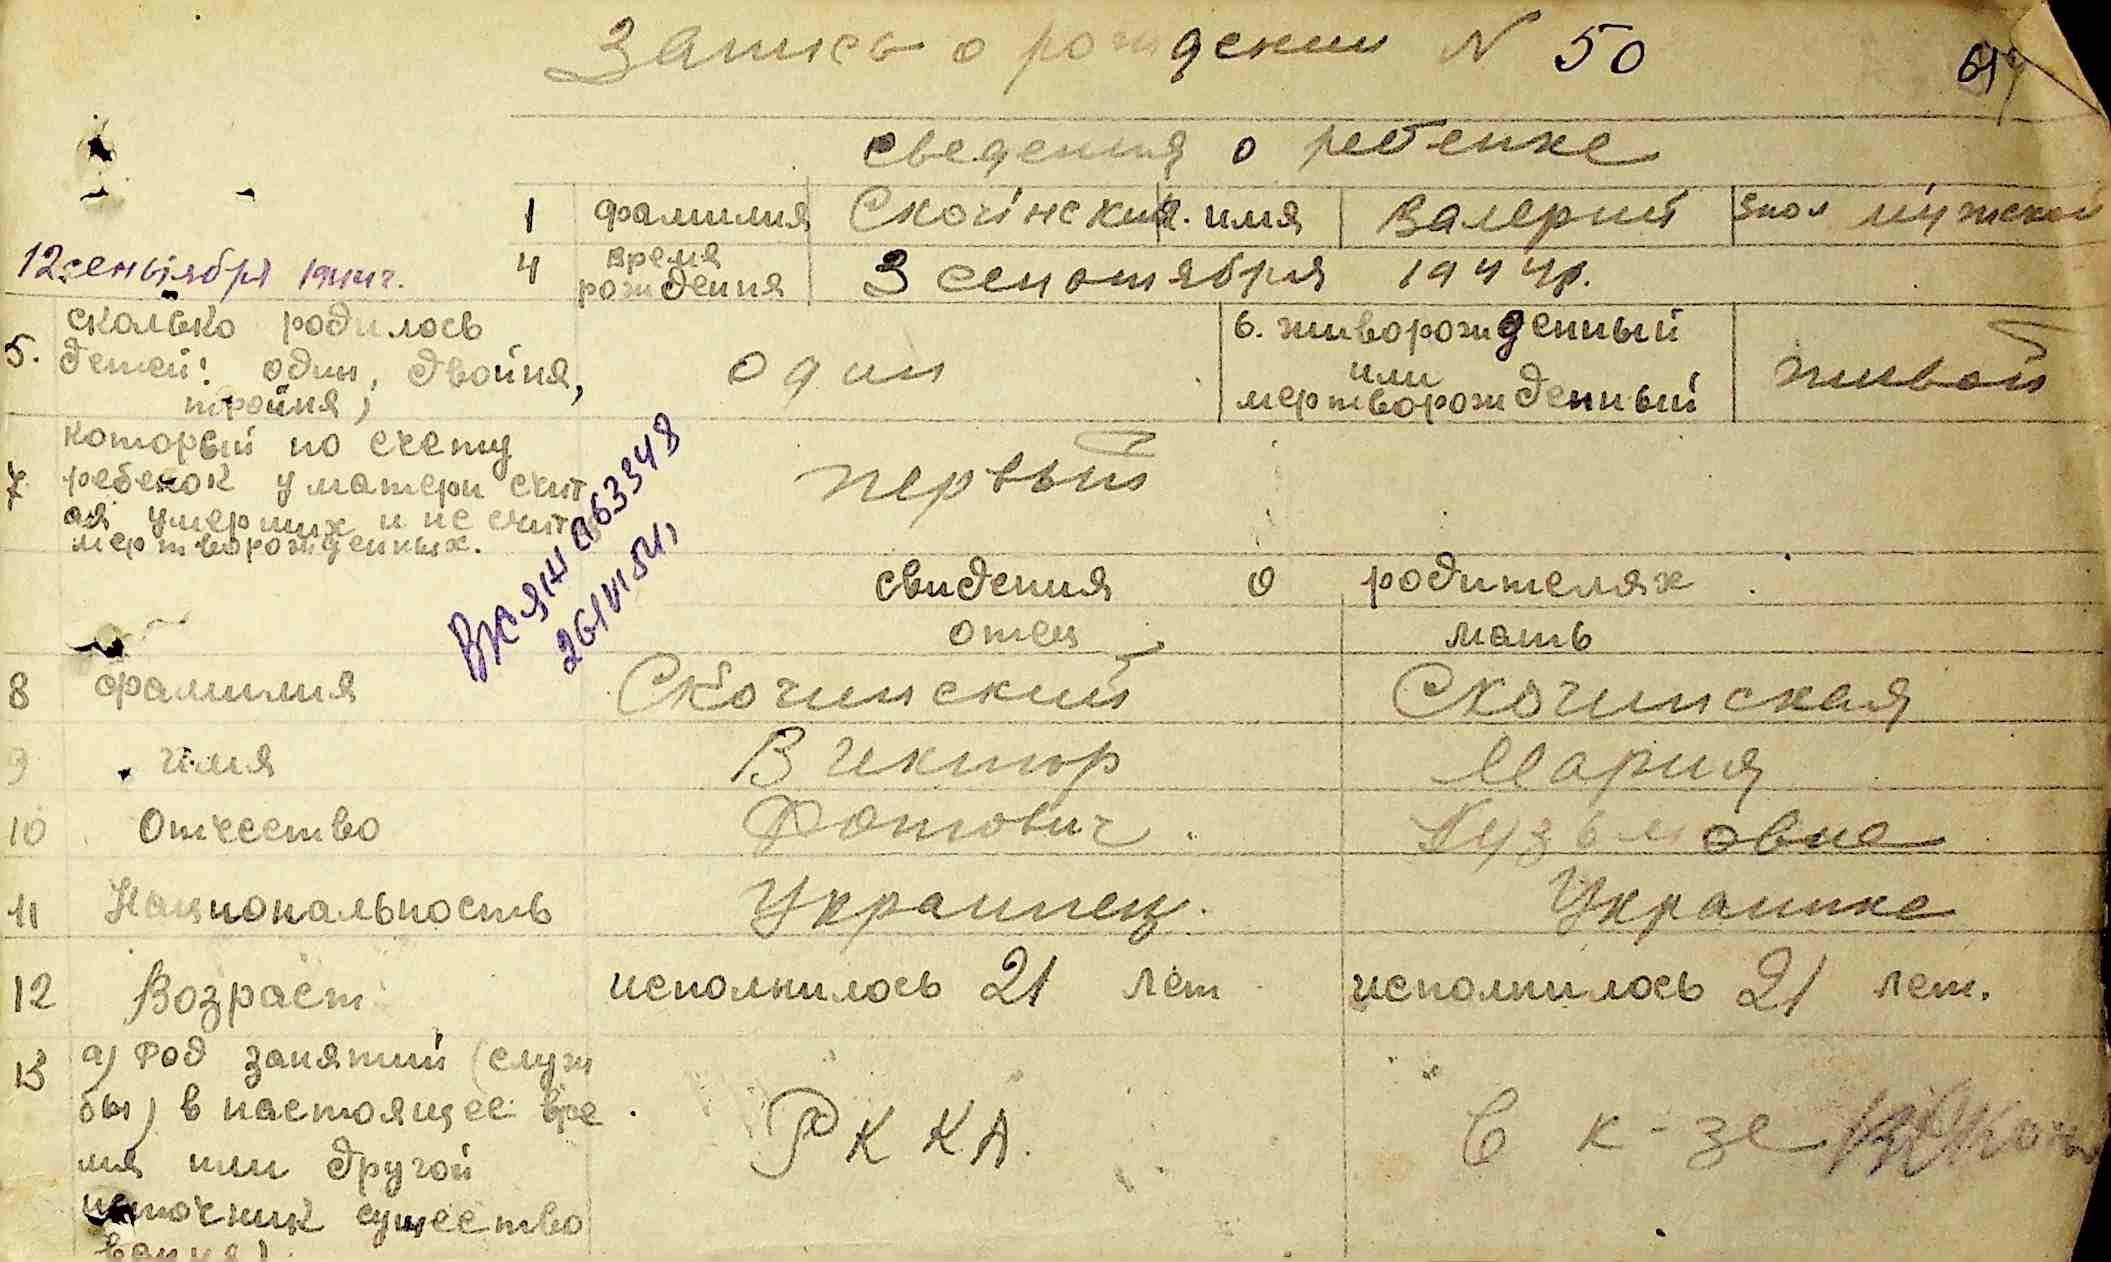 Запись о рождении N 50
сведения о ребенке
1 фамилия Скочінский 2. имя Валерий 3 пол мужской
12 сентября 1944 г.
4 время рождения 3 сенотября 1944 г.
5. сколько родилось
детей: один, двойня,
тройня,
один
6. живорожденный
или
мертворожденный
живой
7 который по счету
ребенок у матери счит
ая умерших и не счит
мертворожденных.
первый
063348
свидения о родителях
отец мать
8 фамилия Скочинский Скочинская
9 имя Виктор Мария
10 Отчество Фотович Кузьмовне
11 Национальность Украинец. Украинке
12 Возраст исполнилось 21 лет исполнилось 21 лет.
13 а) Род занятий (служ
бы) в настоящее вре
мя или другой
источник существо
вания)
РККА.
в к-зе